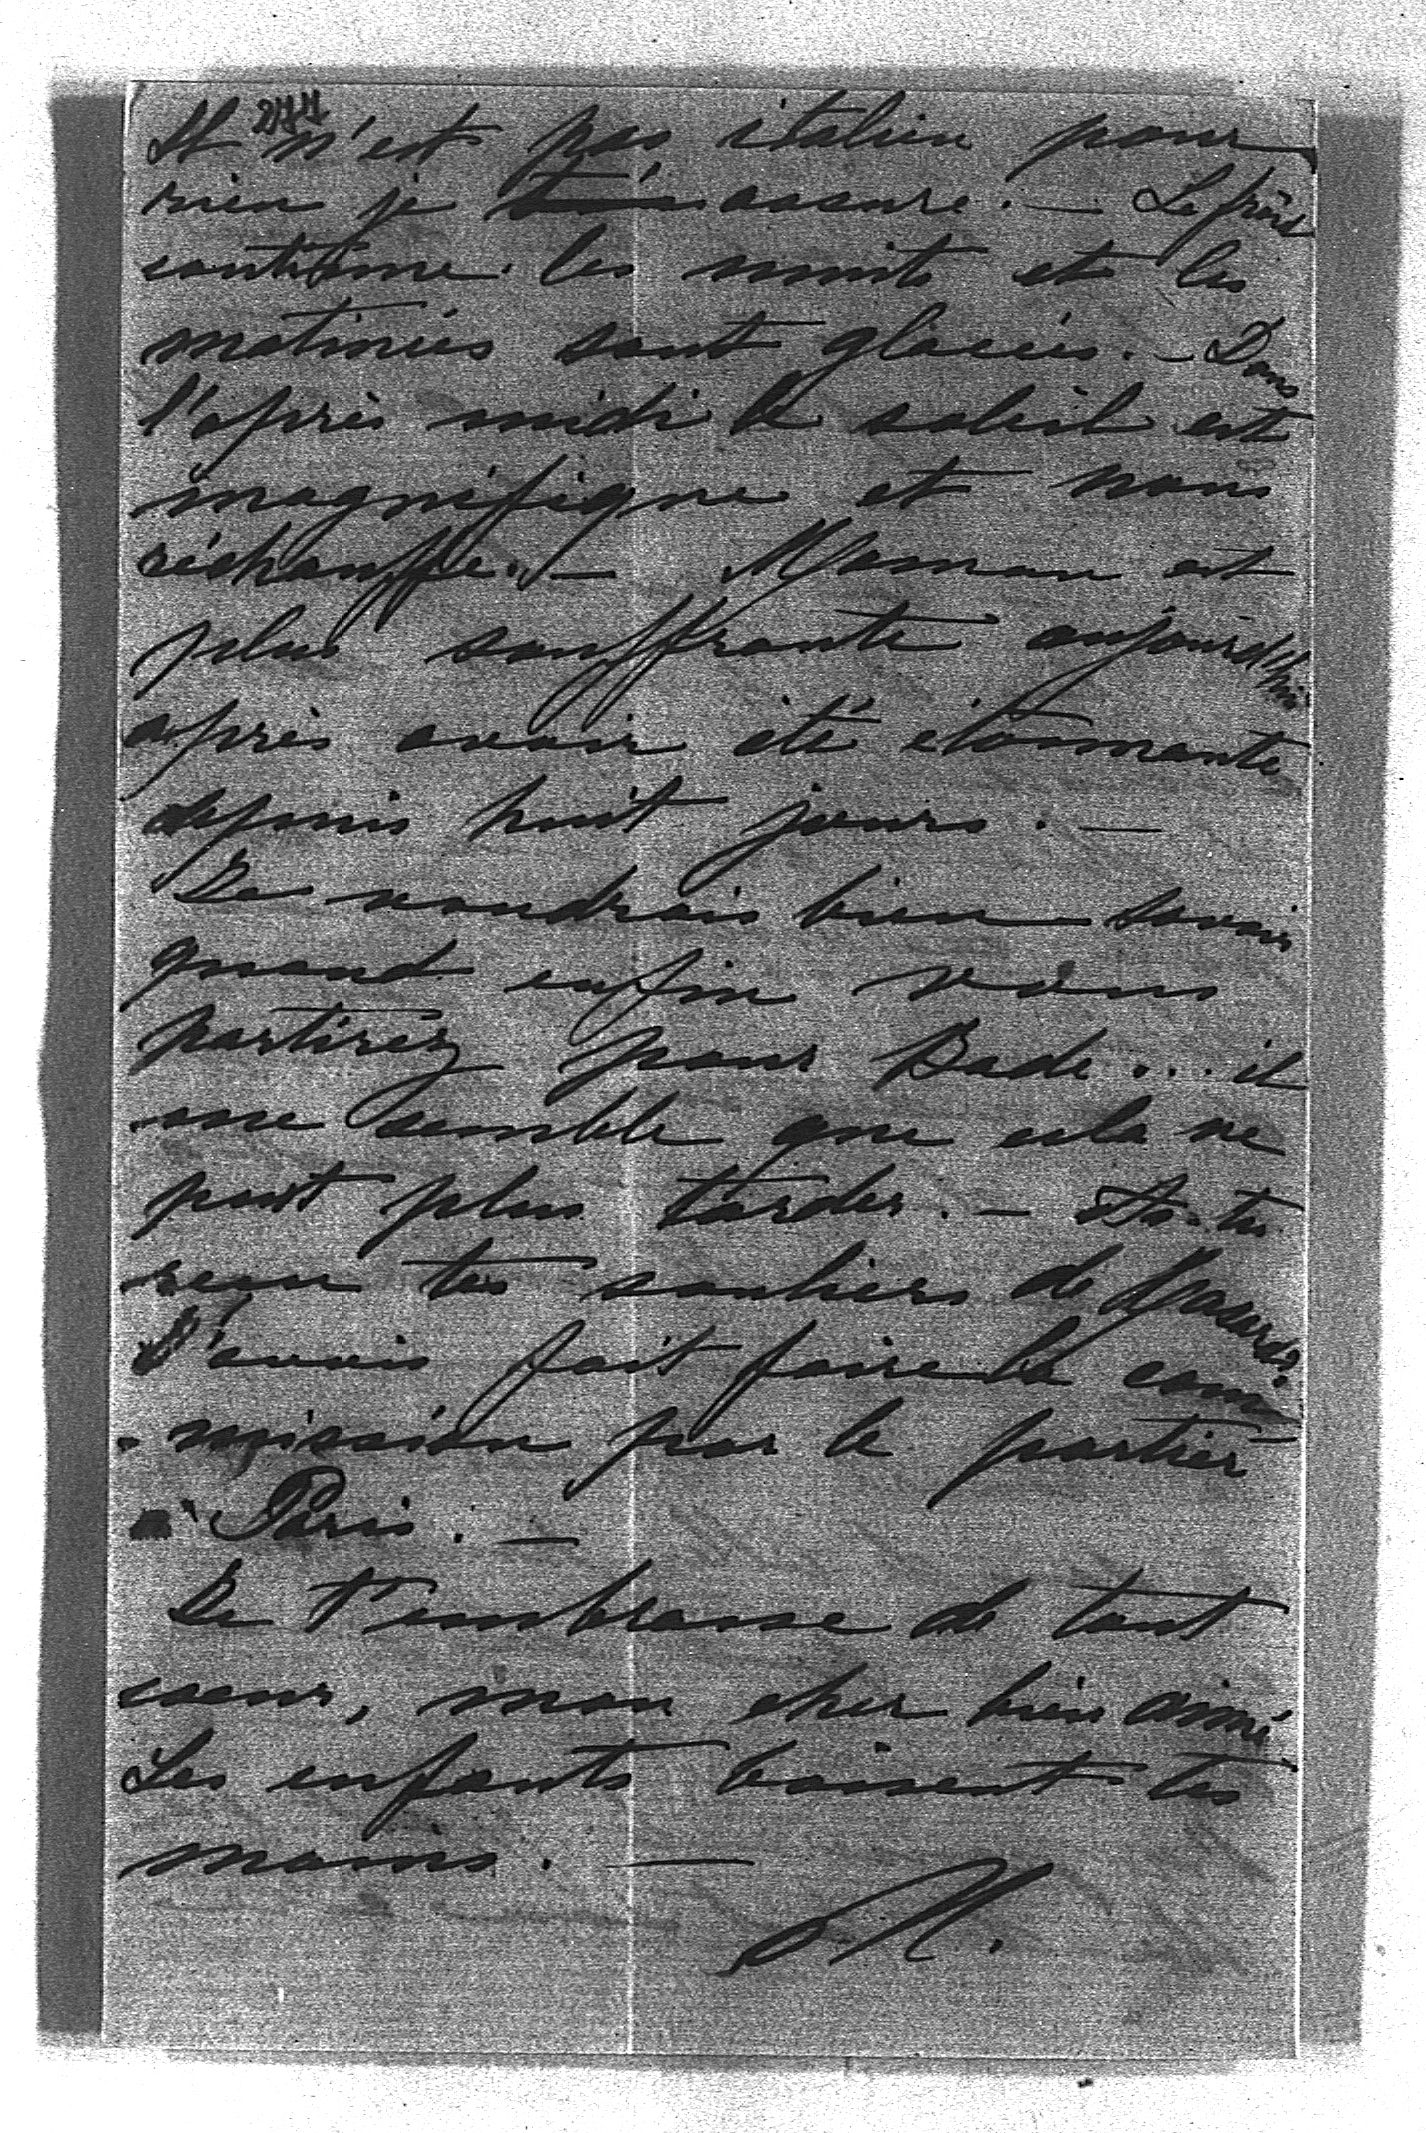 Il n'est pas italien pour
rien je t'en assure. — Le froid
continue. les nuits et les
matinées sont glacées. — Dans
l'après midi le soleil est
magnifique et nous
réchauffe. — Maman est
plus souffrante aujourd'hui
après avoir été étonnante
depuis huit jours. —
Je voudrais bien savoir
quand enfin vous
partirez pour Bade... il
me semble que cela ne
peut plus tarder. — As-tu
reçu tes souliers de
J'avais fait faire la com
- mission par le portier
à Paris. —
Je t'embrasse de tout
coeur, mon cher bien aimé
Les enfants baisent tes
mains. —
M.